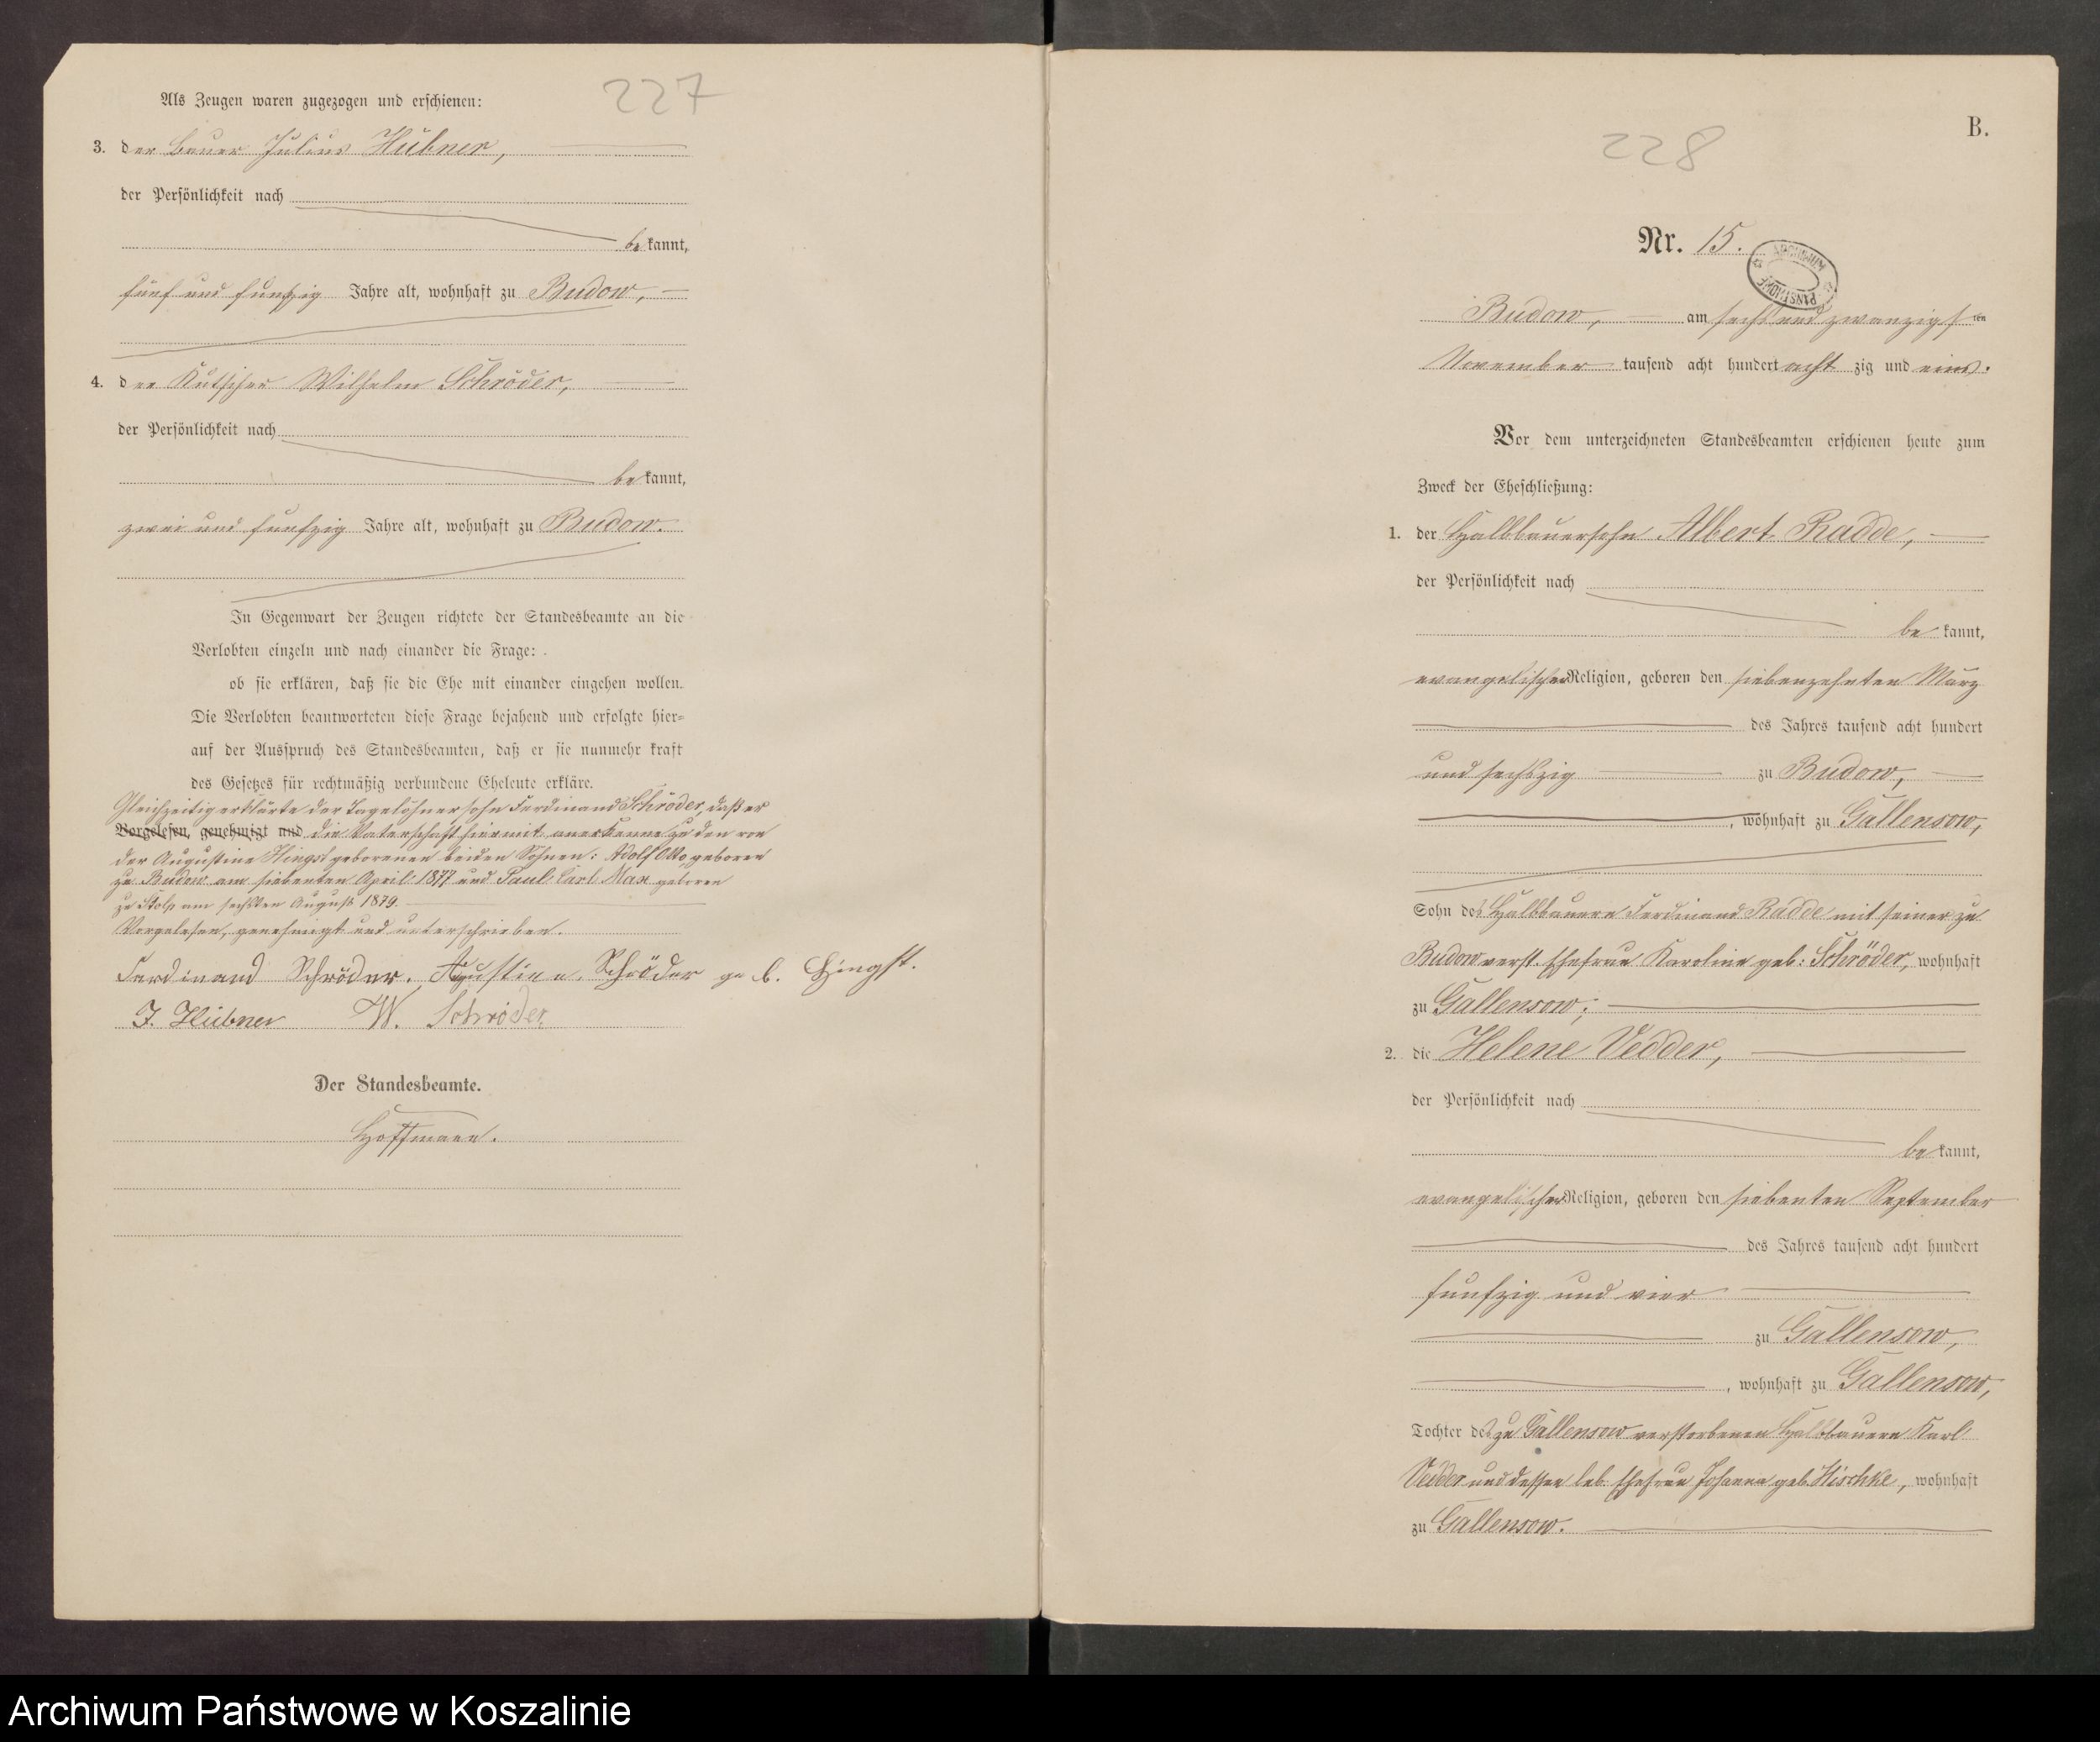 227
Als Zeugen waren zugezogen und erschienen:
3. der Bauer Julius Hübner,
der Persönlichkeit nach
be kannt,
fünf und funfzig Jahre alt, wohnhaft zu Budow,
4. der Kutscher Wilhelm Schröder,
der Persönlichkeit nach
be kannt,
zwei und funfzig Jahre alt, wohnhaft zu Budow.
In Gegenwart der Zeugen richtete der Standesbeamte an die
Verlobten einzeln und nach einander die Frage:
ob sie erklären, daß sie die Ehe mit einander eingehen wollen.
Die Verlobten beantworteten diese Frage bejahend und erfolgte hier=
auf der Ausspruch des Standesbeamten, daß er sie nunmehr kraft
des Gesetzes für rechtmäßig verbundene Eheleute erkläre.
Gleichzeitig erklärte der Tagelöhnersohn Ferdinand Schröder, daß er
Vorgelesen, genehmigt und die Vaterschaft hiermit anerkenne zu den von
der Augustine Hingst geborenen beiden Söhnen: Adolf Otto, geboren
zu Budow am siebenten April 1877 und Paul Carl Max geboren
zu Stolp am sechsten August 1879.
Vorgelesen, genehmigt und unterschrieben.
Ferdinand Schröder. Augustine Schröder geb. Hingst.
J. Hübner W. Schröder
Der Standesbeamte.
Hoffmann.
B.
228
Nr. 15.
ARCHIWUM
PAŃSTWOWE
Budow, am sechs und zwanzigsten
November tausend acht hundert acht zig und eins.
Vor dem unterzeichneten Standesbeamten erschienen heute zum
Zweck der Eheschließung:
1. der Halbbauersohn Albert Radde,
der Persönlichkeit nach
be kannt,
evangelischer Religion, geboren den siebenzehnten März
des Jahres tausend acht hundert
und sechszig zu Budow,
, wohnhaft zu Gallensow,
Sohn des Halbbauern Ferdinand Radde mit seiner zu
Budow verst. Ehefrau Karoline geb: Schröder, wohnhaft
zu Gallensow;
2. die Helene Vedder,
der Persönlichkeit nach
be kannt,
evangelischer Religion, geboren den siebenten September
des Jahres tausend acht hundert
funfzig und vier
zu Gallensow,
, wohnhaft zu Gallensow,
Tochter des zu Gallensow verstorbenen Halbbauern Karl
Vedder und dessen leb. Ehefrau Johanna geb. Hischke, wohnhaft
zu Gallensow.
Archiwum Państwowe w Koszalinie